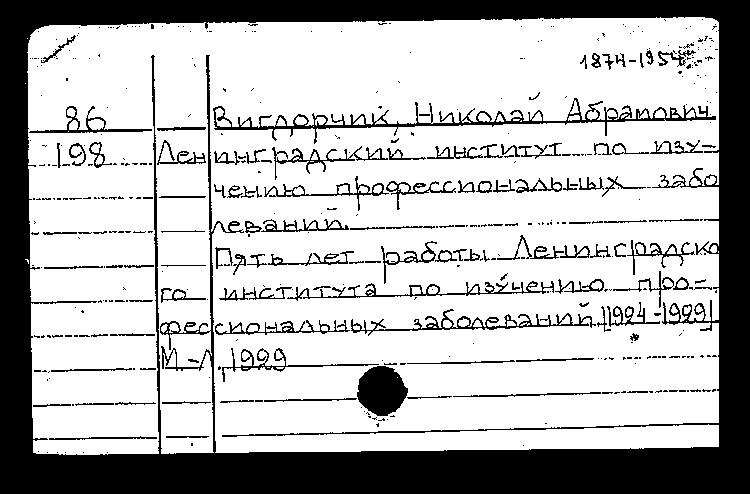 1874-1954
86 Вигдорчик, Николай Абрамович
198 Ленинградский институт по изу-
чению профессиональных забо
леваний.
Пять лет работы Ленинградско
го института по изучению про-
фессиональных заболеваний. [1924-1929]
М.-Л., 1929